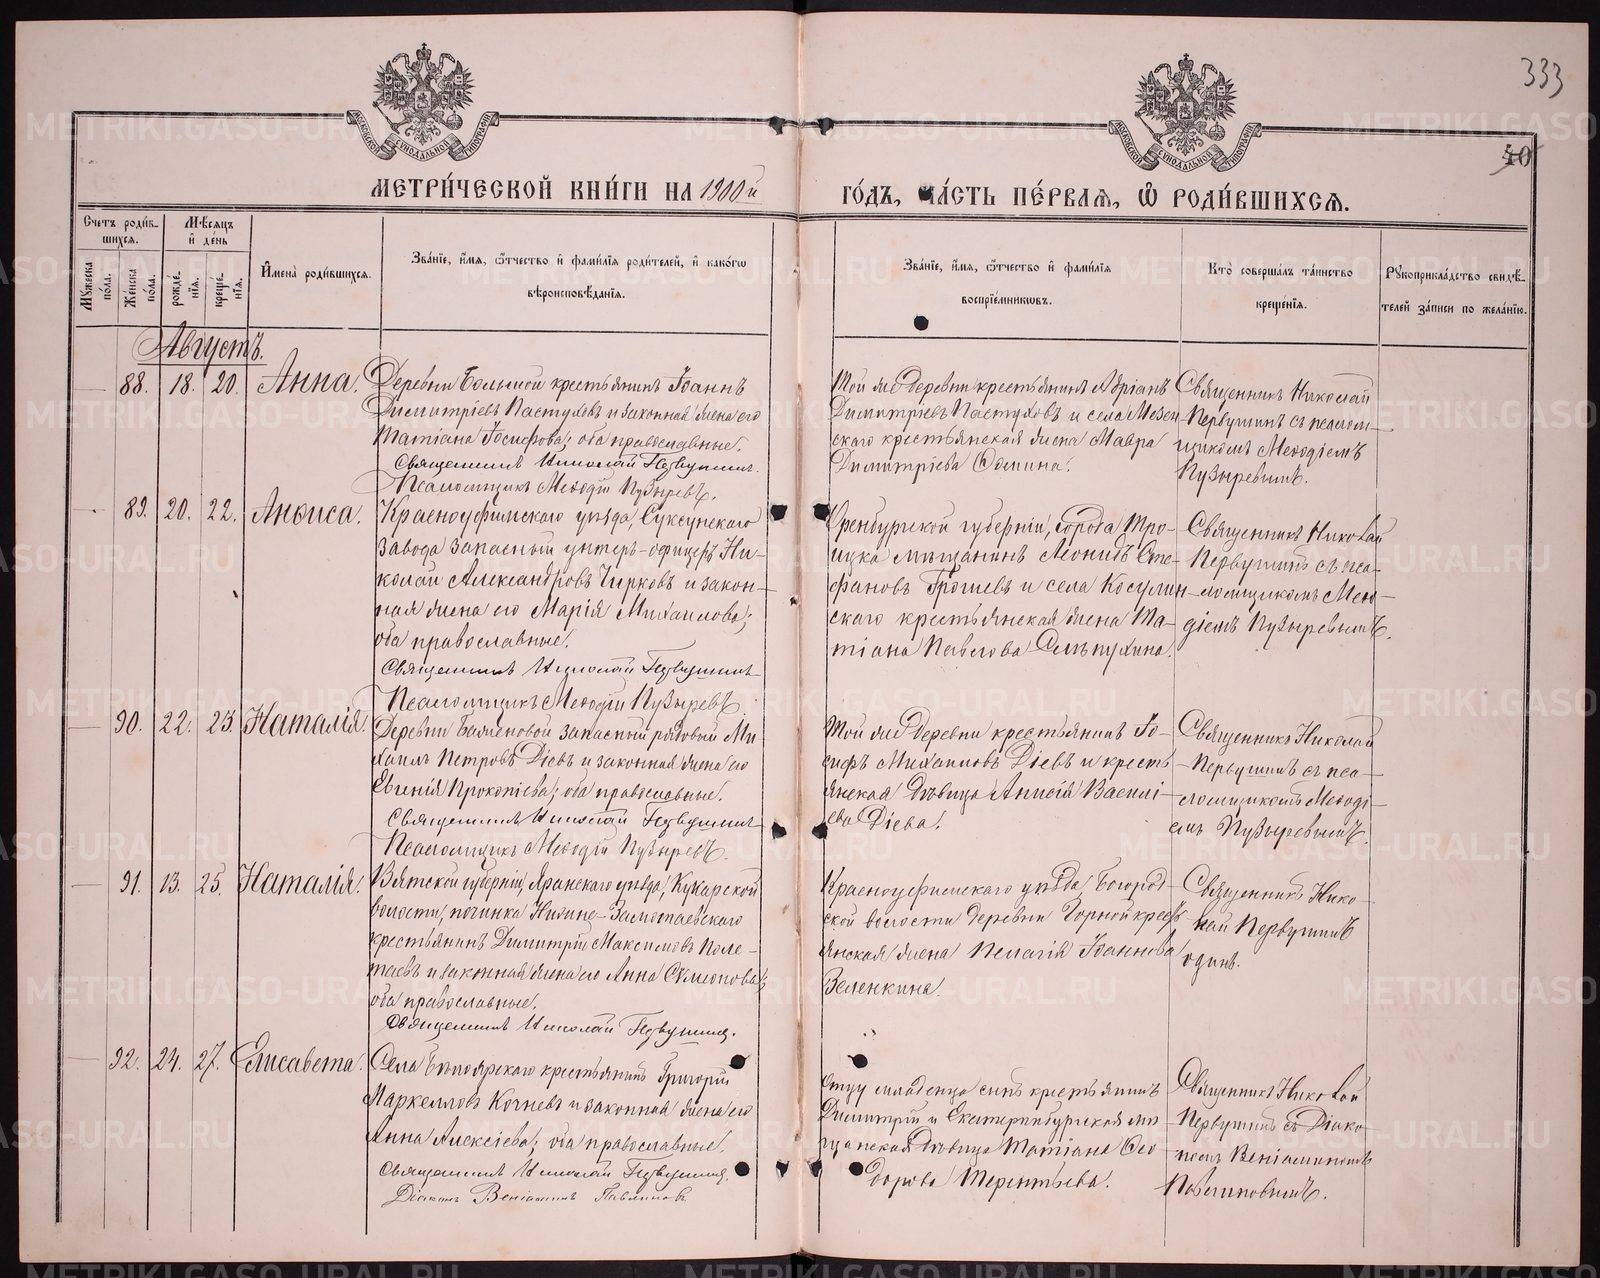 333
40
МЕТРИ́ЧЕСКОЙ КНИ́ГИ НА 1900й ГО́ДЪ, ЧА́СТЬ ПЕ́РВАЯ, Ѽ РОДИ́ВШИХСЯ.
Счетъ роди́вшихся.
Мѣсяцъ и҆ де́нь
Мꙋ́жеска по́ла.
Же́нска по́ла.
рожде́нїѧ.
креще́нїѧ.
И҆мена̀ роди́вшихсѧ.
Зва́нїе, и҆́мѧ, ѻ҆́тчество и҆ фами́лїѧ роди́телей, и҆ како́гѡ
вѣроисповѣ́данїѧ.
Зва́нїе, и҆́мѧ, ѻ҆́тчество и҆ фами́лїѧ
воспрїе́мникѡвъ.
Кто̀ соверша́лъ та́инство
креще́нїѧ.
Рꙋкоприкла́дство свидѣ́-
телей за́писи по жела́нїю.
Августъ.
88. 18. 20. Анна.
Деревни Большой крестьянинъ Іоаннъ
Димитріевъ Пастуховъ и законная жена его
Татіана Іосифова; оба православные.
Священникъ Николай Первушинъ.
Псаломщикъ Меѳодій Пузыревъ.
Той же деревни крестьянинъ Адріанъ
Димитріевъ Пастуховъ и села Мезен
скаго крестьянская жена Мавра
Димитріева Ѳомина.
Священникъ Николай
Первушинъ съ псалом-
щикомъ Меѳодіемъ
Пузыревымъ.
89. 20. 22. Анѳиса.
Красноуфимскаго уѣзда, Суксунскаго
завода запасный унтеръ-офицеръ Ни-
колай Александровъ Чирковъ и закон-
ная жена его Марія Михаилова;
оба православные.
Священникъ Николай Первушинъ
Псаломщикъ Меѳодій Пузыревъ.
Оренбургской губерніи, города Тро-
ицка мѣщанинъ Леонидъ Сте-
фановъ Грошевъ и села Косулин-
скаго крестьянская жена Та-
тіана Павлова Слѣпухина.
Священникъ Николай
Первушинъ съ пса-
ломщикомъ Меѳо-
діемъ Пузыревымъ.
90. 22. 23. Наталія.
Деревни Баженовой запасный рядовой Ми-
хаилъ Петровъ Діевъ и законная жена его
Евгенія Прокопіева; оба православные.
Священникъ Николай Первушинъ
Псаломщикъ Меѳодій Пузыревъ.
Той же деревни крестьянинъ Іо-
сифъ Михаиловъ Діевъ и кресть-
янская дѣвица Анисія Василі-
ева Діева.
Священникъ Николай
Первушинъ съ пса-
ломщикомъ Меѳоді-
емъ Пузыревымъ.
91. 13. 25. Наталія.
Вятской губерніи, Яранскаго уѣзда, Кукарской
волости, починка Нижне-Замотаевскаго
крестьянинъ Димитрій Максимовъ Поле-
таевъ и законная жена его Анна Сѵмеонова;
оба православные.
Священникъ Николай Первушинъ.
Красноуфимскаго уѣзда, Богород-
ской волости деревни Горной кресть-
янская жена Пелагія Іоаннова
Зеленкина.
Священникъ Нико-
лай Первушинъ
одинъ.
92. 24. 27. Елисавета.
Села Бѣлоярскаго крестьянинъ Григорій
Маркелловъ Кочневъ и законная жена его
Анна Алексіева; оба православные.
Священникъ Николай Первушинъ.
Діаконъ Веніаминъ Павлиновъ
Отцу младенца сынъ крестьянинъ
Димитрій и Екатеринбургская мѣ-
щанская дѣвица Татіана Ѳео-
дорова Терентьева.
Священникъ Николай
Первушинъ съ Діако-
номъ Веніаминомъ
Павлиновымъ.
METRIKI.GASO-URAL.RU